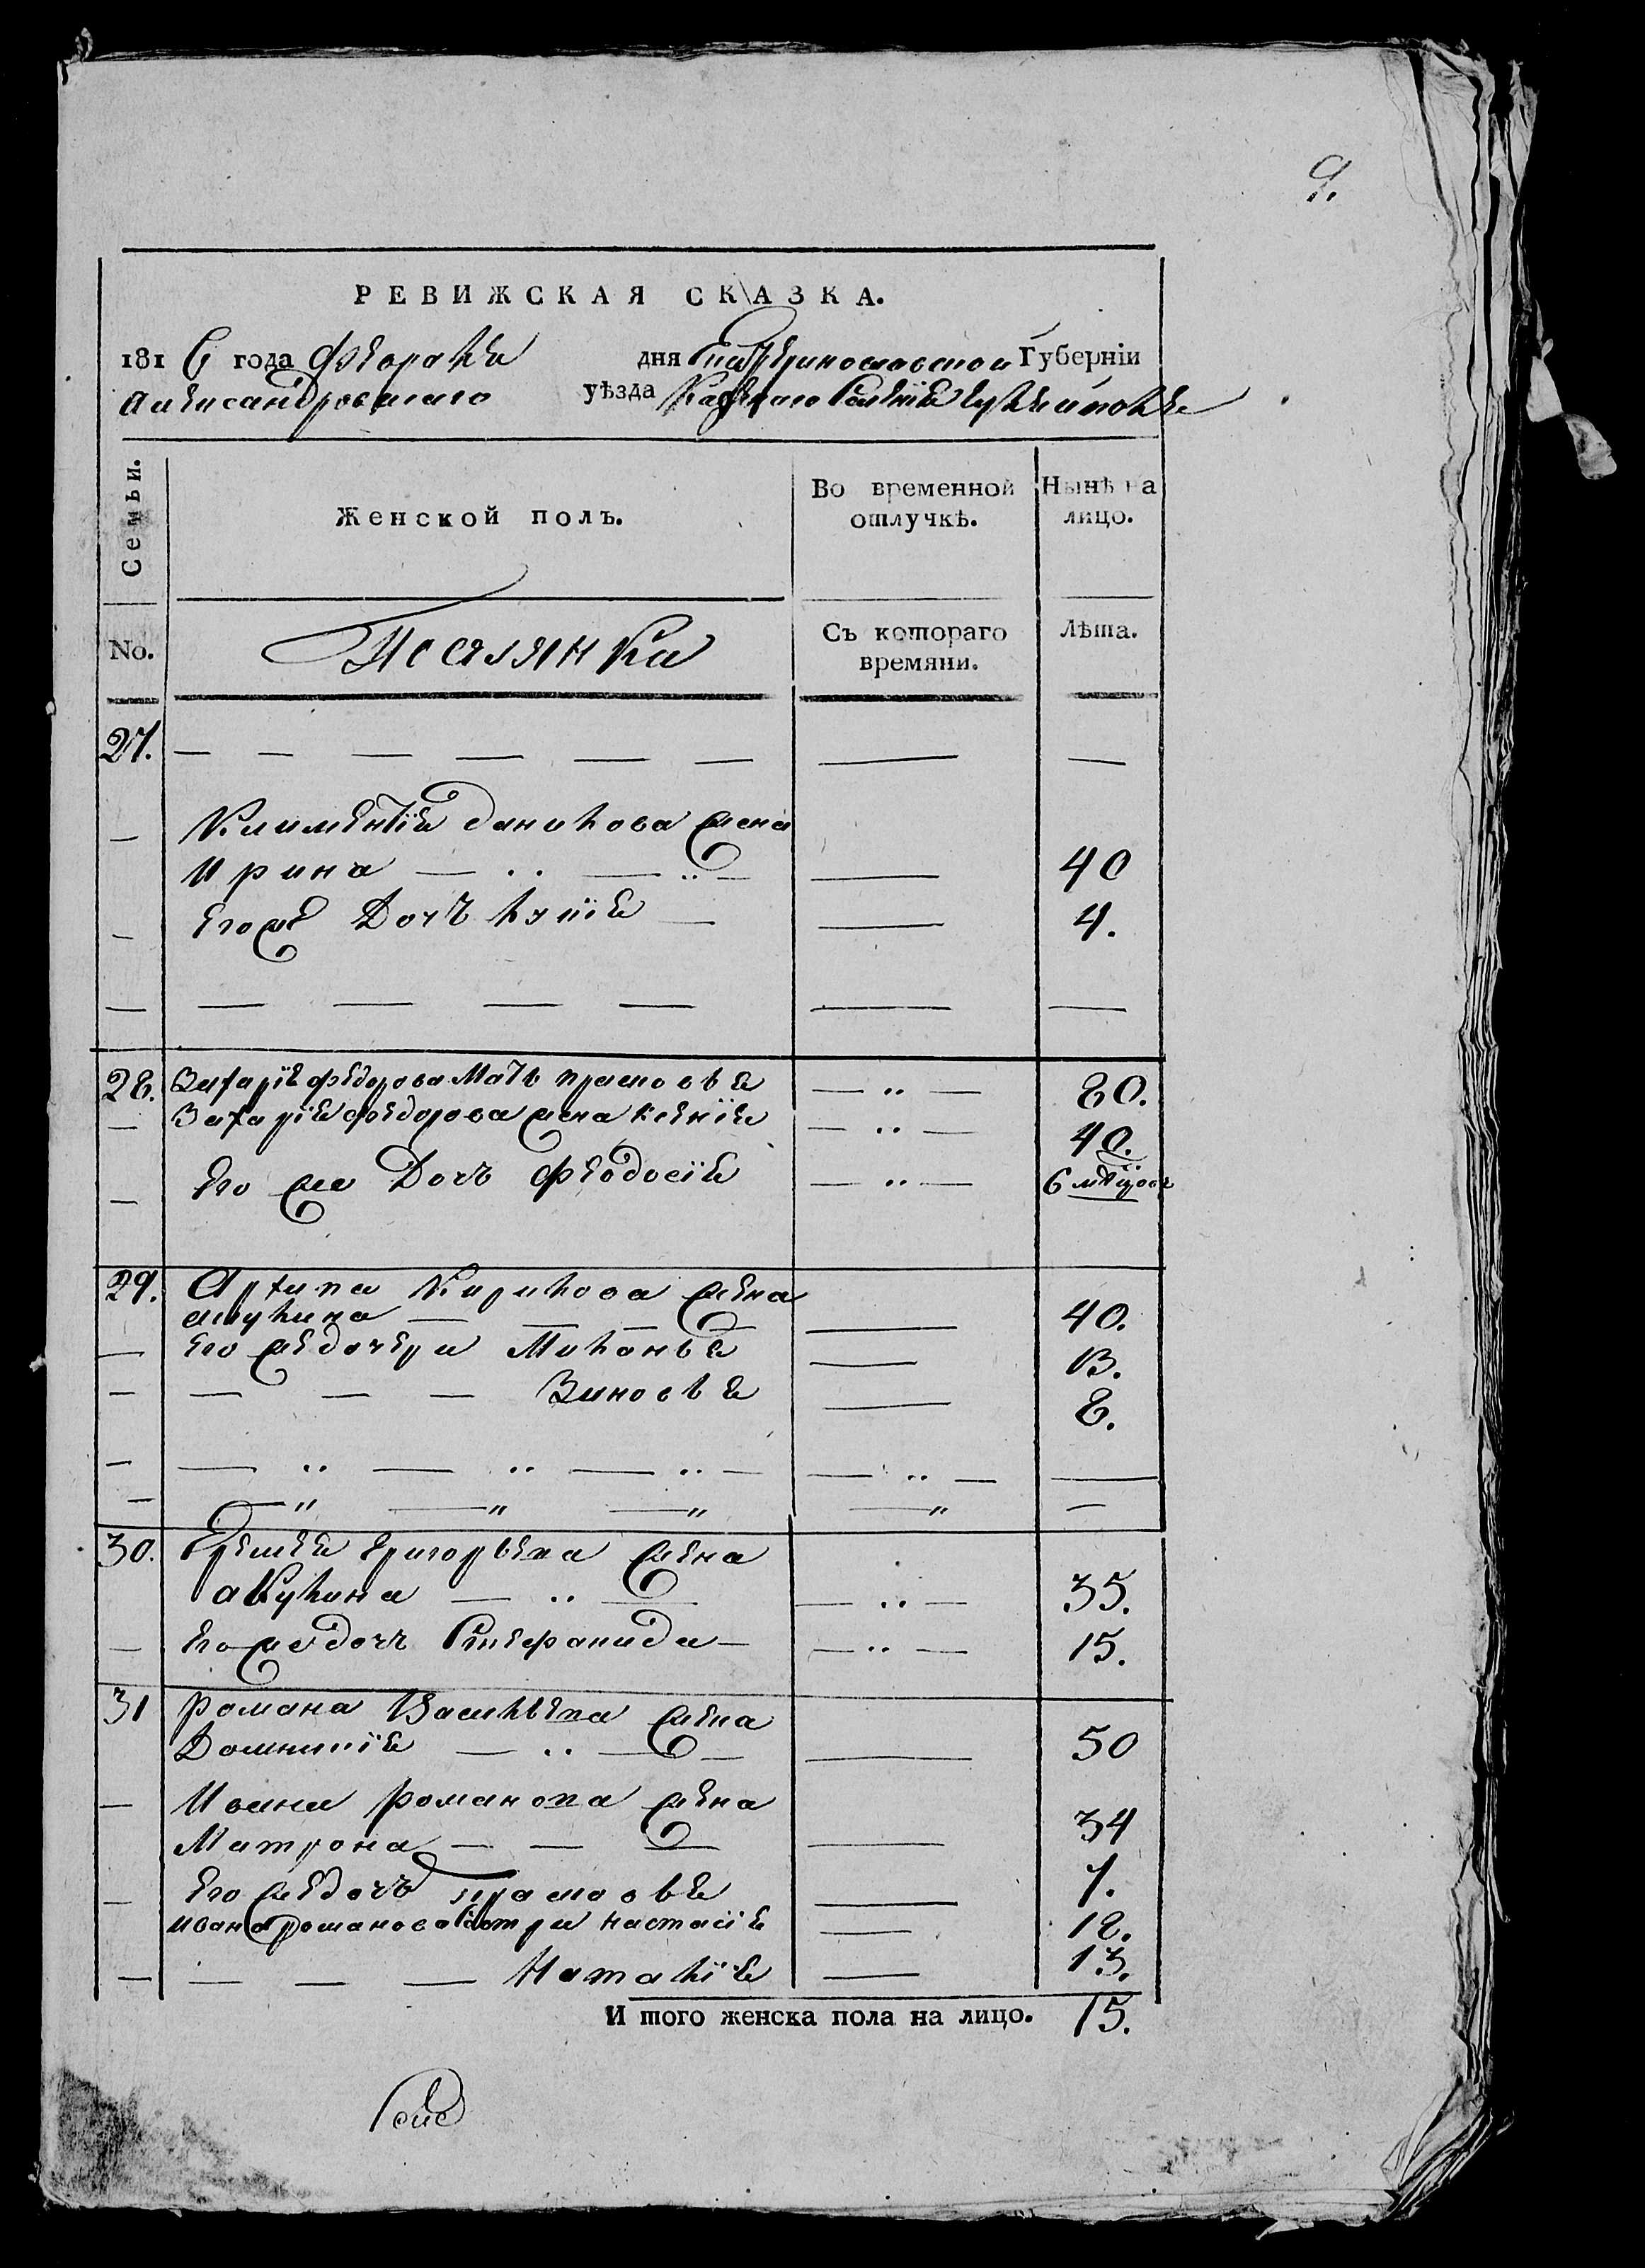 9.
РЕВИЖСКАЯ СКАЗКА.
181 6 года Февраля дня Екатеринославской Губернїи
Александровскаго уѣзда Казеннаго Селенїя
Семьи.
Женской полъ.
Во временной отлучкѣ.
Нынѣ на лицо.
No.
Поселянки
Съ котораго времяни.
Лѣта.
27. — — — — — — — —
— Климентїя данилова жена
Ирина — .. — .. — — 40
— Его же Дочь Юлїя — — 4.
— — — — — — —
28. Захарїя федорова Мать прасковья — .. — 80.
— Захарїя федорова жена Ксенїя — .. — 40.
— Его же Дочь Феодосїя — .. — 6 мѣсяцовъ
29. Архипа Кирилова жена
акулина — — — — 40.
— Его же дочери Маланья — 13.
— — — — Зиновья — 8.
— — .. — .. — .. — — .. — —
— — " — " — " — " —
30. Еремея Григорьева жена
акулина — .. — — .. — 35.
— Его же дочь Стефанида — — .. — 15.
31 Романа Васильева жена
Домникїя — .. — — — 50
— Ивана Романова жена
Матрона — — — — 34
— Его же дочь прасковья — 7.
Ивана романова сестри настасїя — 18.
— — — — Наталїя — 13.
И того женска пола на лицо. 15.